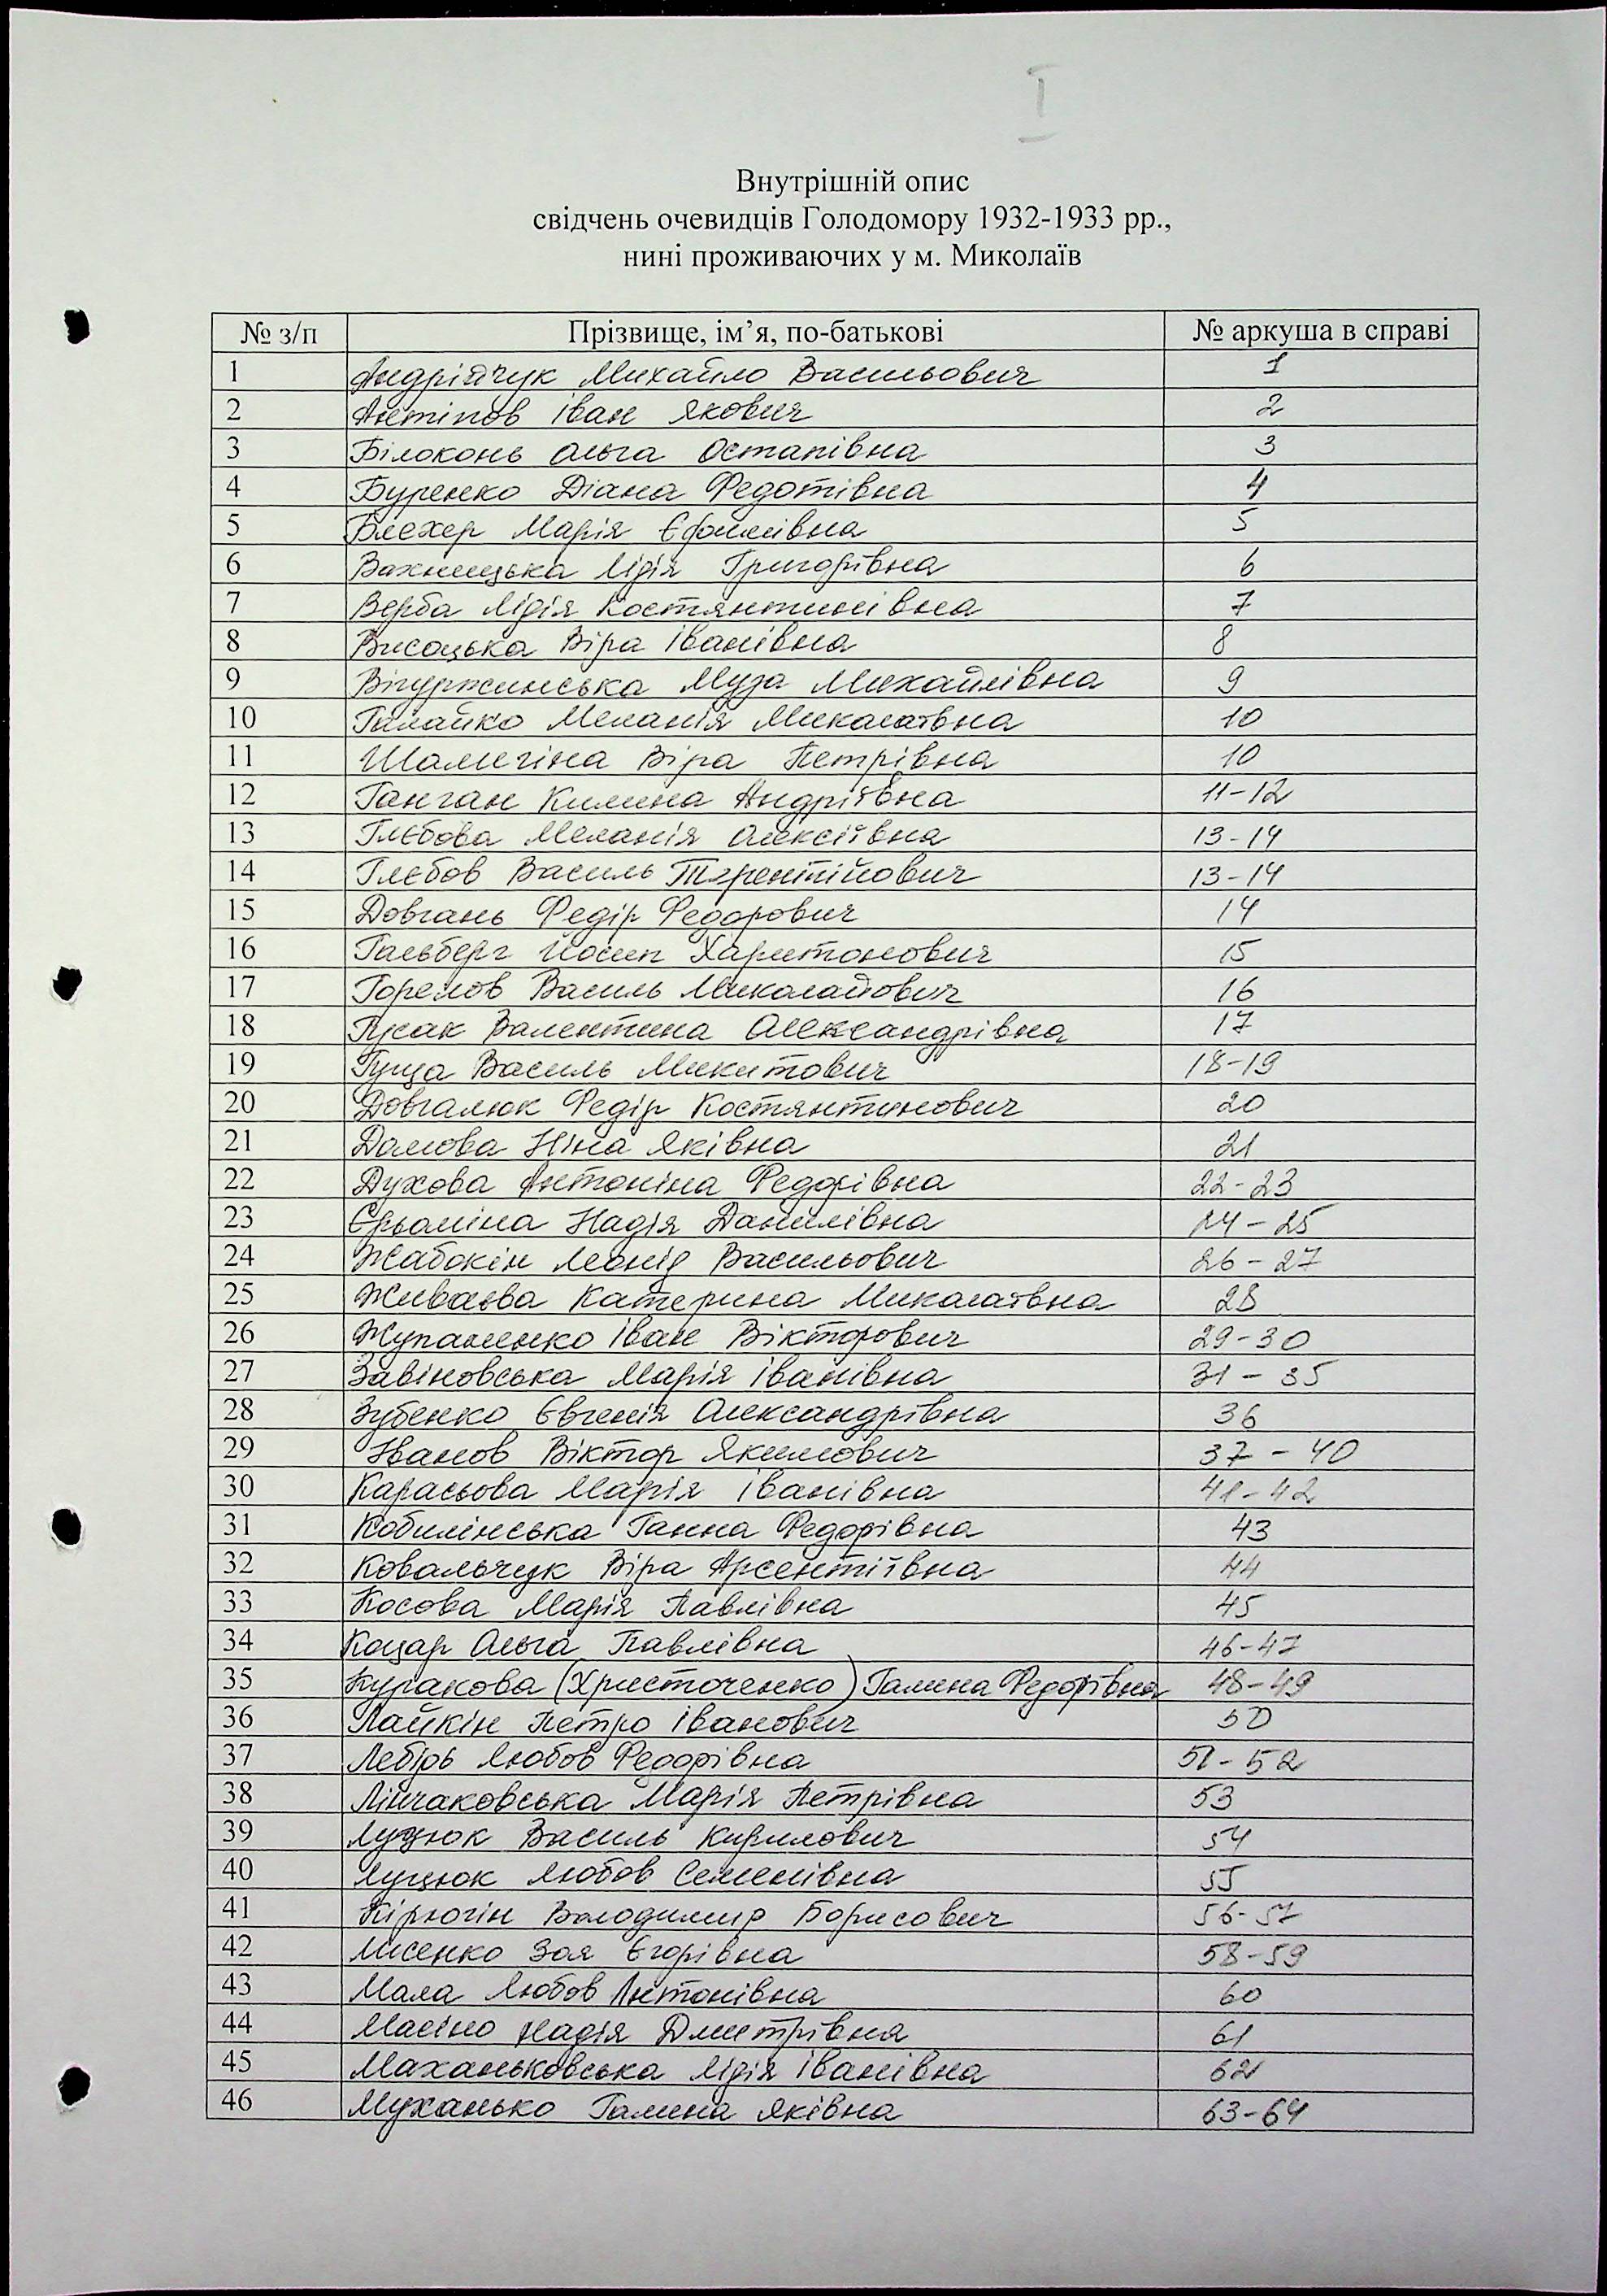 I
Внутрішній опис
свідчень очевидців Голодомору 1932-1933 рр.,
нині проживаючих у м. Миколаїв
№ з/п Прізвище, ім’я, по-батькові № аркуша в справі
1 Андрійчук Михайло Васильович 1
2 Антіпов Іван Якович 2
3 Білоконь Ольга Остапівна 3
4 Буренко Діана Федотівна 4
5 Блехер Марія Єфимівна 5
6 Вахницька Лідія Григорівна 6
7 Верба Лідія Костянтинівна 7
8 Висоцька Віра Іванівна 8
9 Вігуржинська Муза Михайлівна 9
10 Галайко Меланія Миколаївна 10
11 Шамгіна Віра Петрівна 10
12 Ганган Килина Андріївна 11-12
13 Глєбова Меланія Олексіївна 13-14
14 Глєбов Василь Терентійович 13-14
15 Довгань Федір Федорович 14
16 Гальберг Йосип Харитонович 15
17 Горелов Василь Миколайович 16
18 Гусак Валентина Олександрівна 17
19 Гуща Василь Микитович 18-19
20 Довгалюк Федір Костянтинович 20
21 Домова Ніна Яківна 21
22 Духова Антоніна Федорівна 22-23
23 Єрьоміна Надія Данилівна 24-25
24 Жабокін Леонід Васильович 26-27
25 Живаєва Катерина Миколаївна 28
26 Жупаненко Іван Вікторович 29-30
27 Завіновська Марія Іванівна 31-35
28 Зубенко Євгенія Олександрівна 36
29 Іванов Віктор Якимович 37-40
30 Карасьова Марія Іванівна 41-42
31 Кобилінська Ганна Федорівна 43
32 Ковальчук Віра Арсентіївна 44
33 Косова Марія Павлівна 45
34 Коцар Ольга Павлівна 46-47
35 Куракова (Христоченко) Галина Федорівна 48-49
36 Лайкін Петро Іванович 50
37 Лебідь Любов Федорівна 51-52
38 Лінчаковська Марія Петрівна 53
39 Луцюк Василь Кирилович 54
40 Луцюк Любов Семенівна 55
41 Кірюгін Володимир Борисович 56-57
42 Лисенко Зоя Єгорівна 58-59
43 Мала Любов Антонівна 60
44 Надія Дмитрівна 61
45 Маханьковська Лідія Іванівна 62
46 Муханько Галина Яківна 63-64